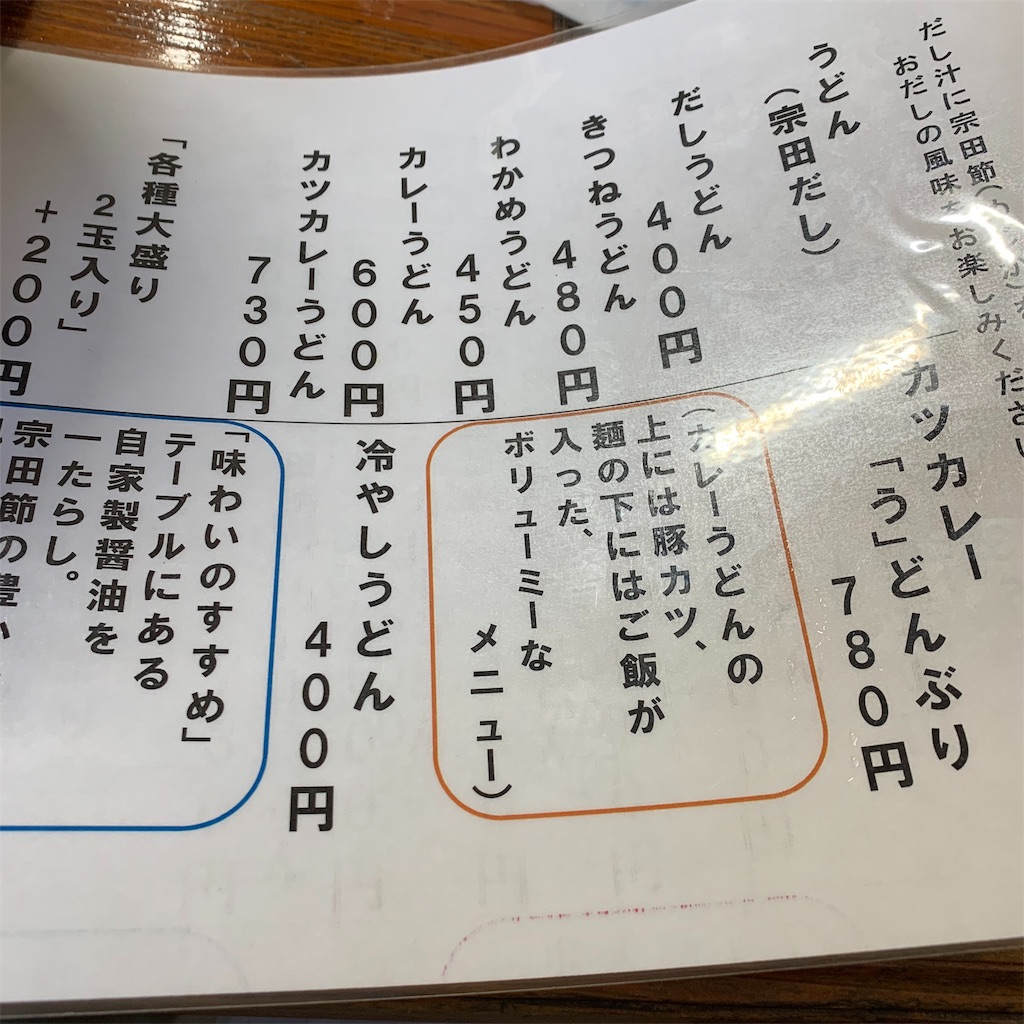 だし汁に宗田節
おだしの風味をお楽しみください
うどん
(宗田だし)
だしうどん
400円
きつねうどん
480円
わかめうどん
450円
カレーうどん
600円
カツカレーうどん
730円
「各種大盛り
2玉入り」
+200円
カツカレー
「う」どんぶり
780円
(カレーうどんの
上には豚カツ、
麺の下にはご飯が
入った、
ボリューミーな
メニュー)
冷やしうどん
400円
「味わいのすすめ」
テーブルにある
自家製醤油を
一たらし。
宗田節の豊か